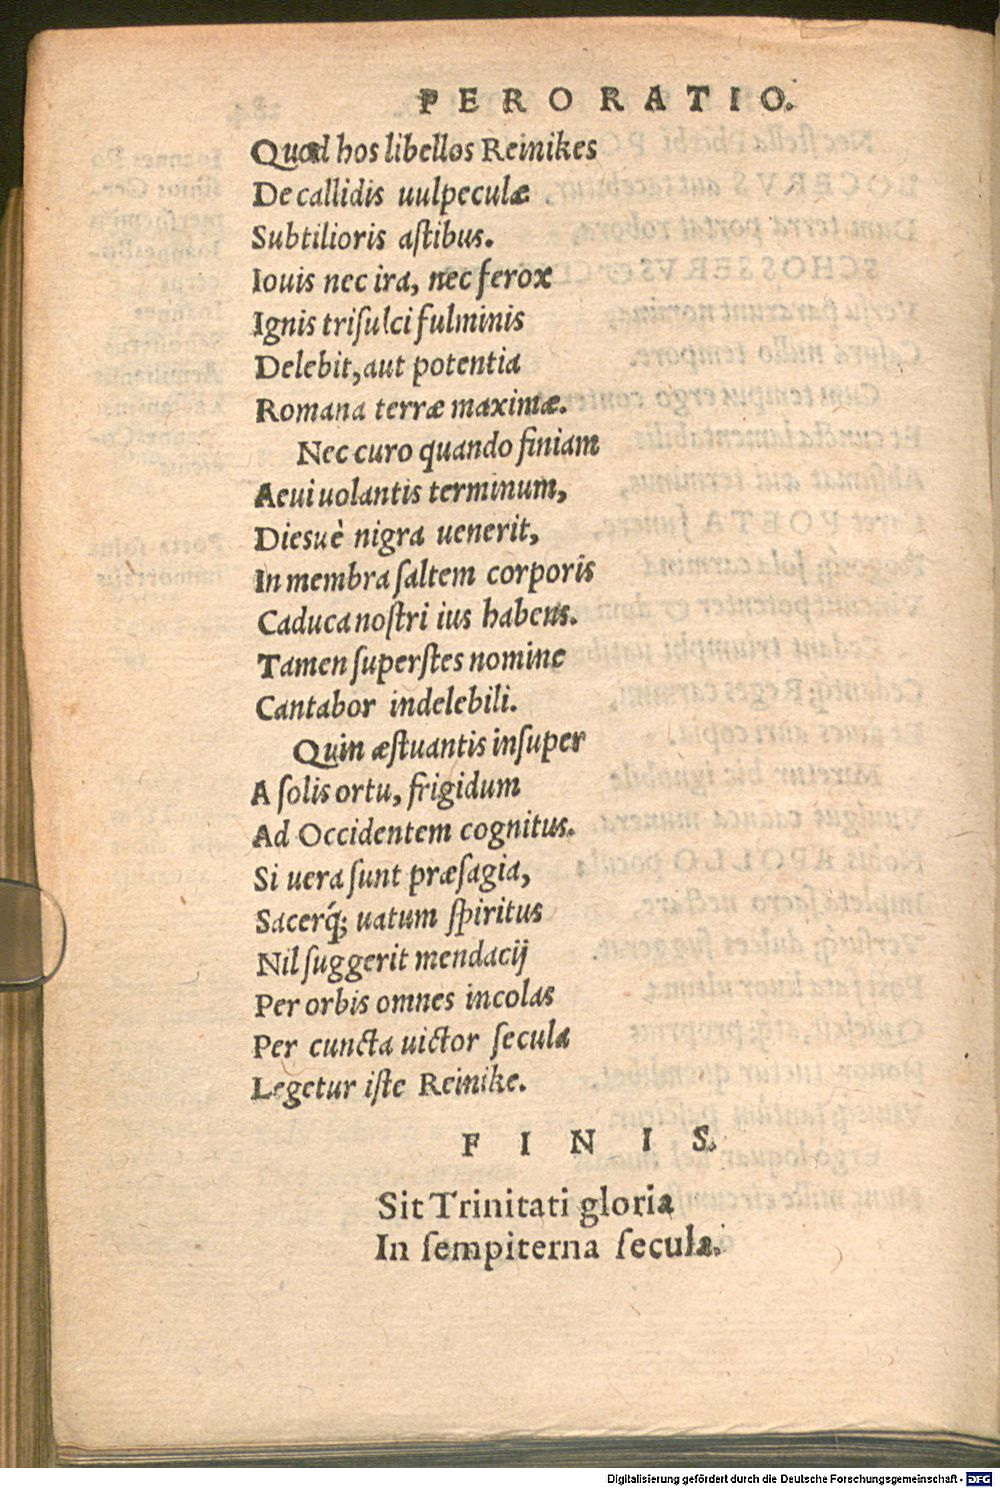 PERORATIO.
Quod hos libellos Reinikes
De callidis uulpeculæ
Subtilioris astibus.
Iouis nec ira, nec ferox
Ignis trisulci fulminis
Delebit, aut potentia
Romana terræ maximæ.
Nec curo quando finiam
Aeui uolantis terminum,
Diesuè nigra uenerit,
In membra saltem corporis
Caduca nostri ius habens.
Tamen superstes nomine
Cantabor indelebili.
Quin æstuantis insuper
A solis ortu, frigidum
Ad Occidentem cognitus.
Si uera sunt præsagia,
Sacerq́; uatum spiritus
Nil suggerit mendacij
Per orbis omnes incolas
Per cuncta uictor secula
Legetur iste Reinike.
FINIS.
Sit Trinitati gloria
In sempiterna secula.
Digitalisierung gefördert durch die Deutsche Forschungsgemeinschaft - DFG